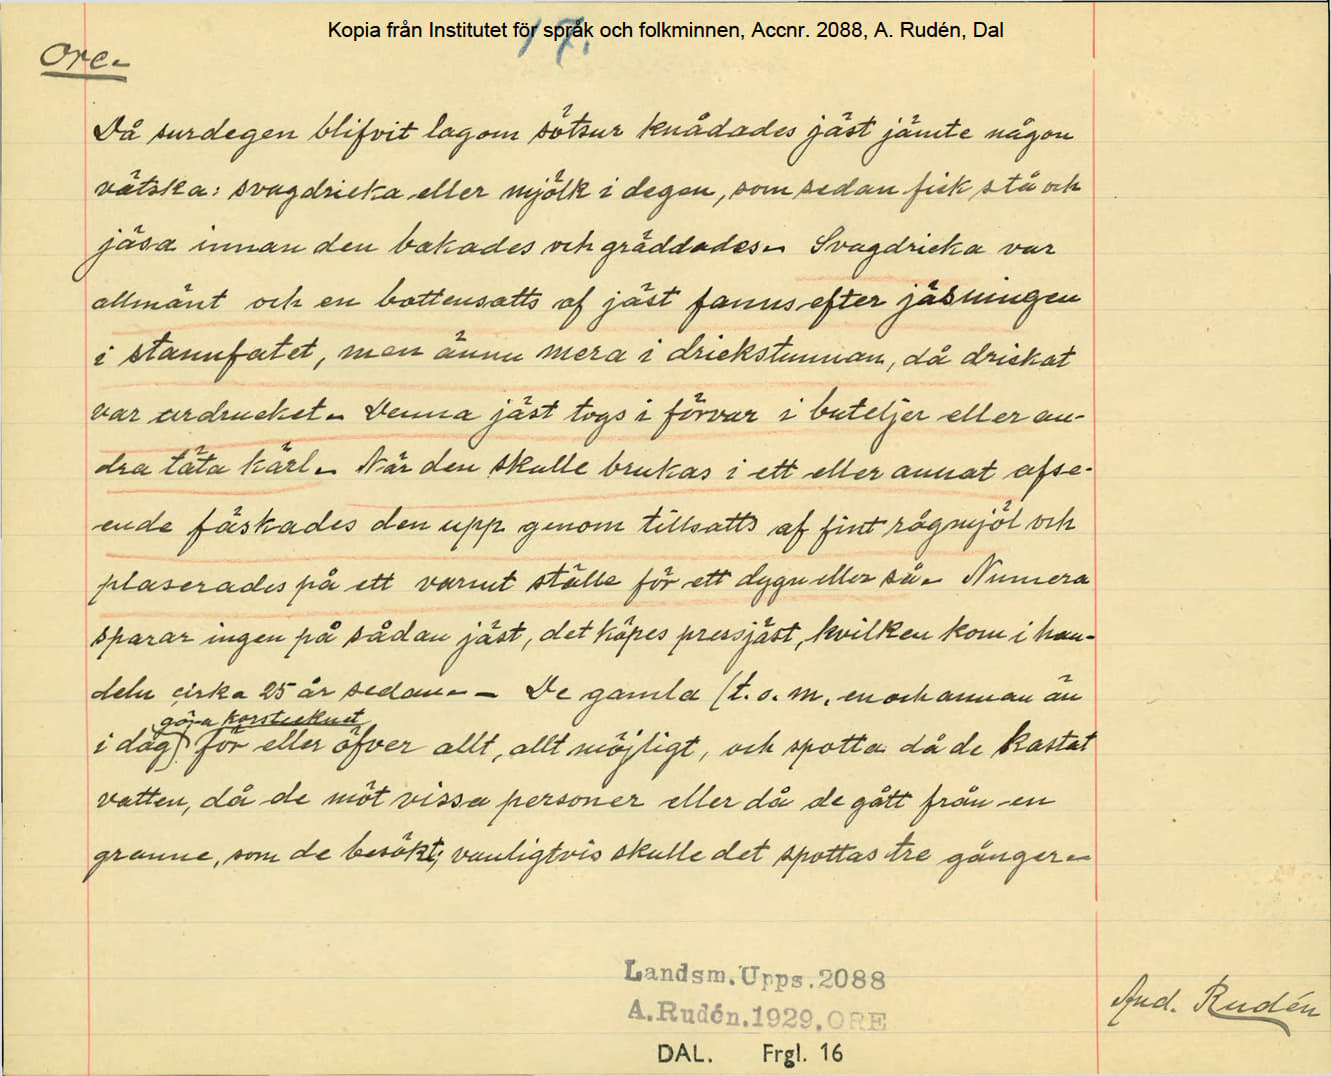 Kopia från Institutet för språk och folkminnen, Accnr. 2088, A. Rudén, Dal
17.
Ore.
Då surdegen blifvit lagom sötsur knådades jäst jämte någon
vätska: svagdricka eller mjölk i degen, som sedan fick stå och
jäsa innan den bakades och gräddades. Svagdricka var
allmänt och en bottensatts af jäst fanns efter jäsningen
i stannfatet, men ännu mera i drickstunnan, då drickat
var urdrucket. Denna jäst togs i förvar i buteljer eller an-
dra täta kärl. När den skulle brukas i ett eller annat afse-
ende fäskades den upp genom tillsatts af fint rågmjöl och
plaserades på ett varmt ställe för ett dygn eller så. Numera
sparar ingen på sådan jäst, det köpes pressjäst, hvilken kom i han-
deln cirka 25 år sedan. — De gamla (t.o.m. en och annan än
göra korstecknet
i dag) för eller öfver allt, allt möjligt, och spotta då de kastat
vatten, då de möt vissa personer eller då de gått från en
granne, som de besökt; vanligtvis skulle det spottas tre gånger.
Landsm. Upps. 2088
A. Rudén. 1929. ORE
DAL. Frgl. 16
And. Rudén